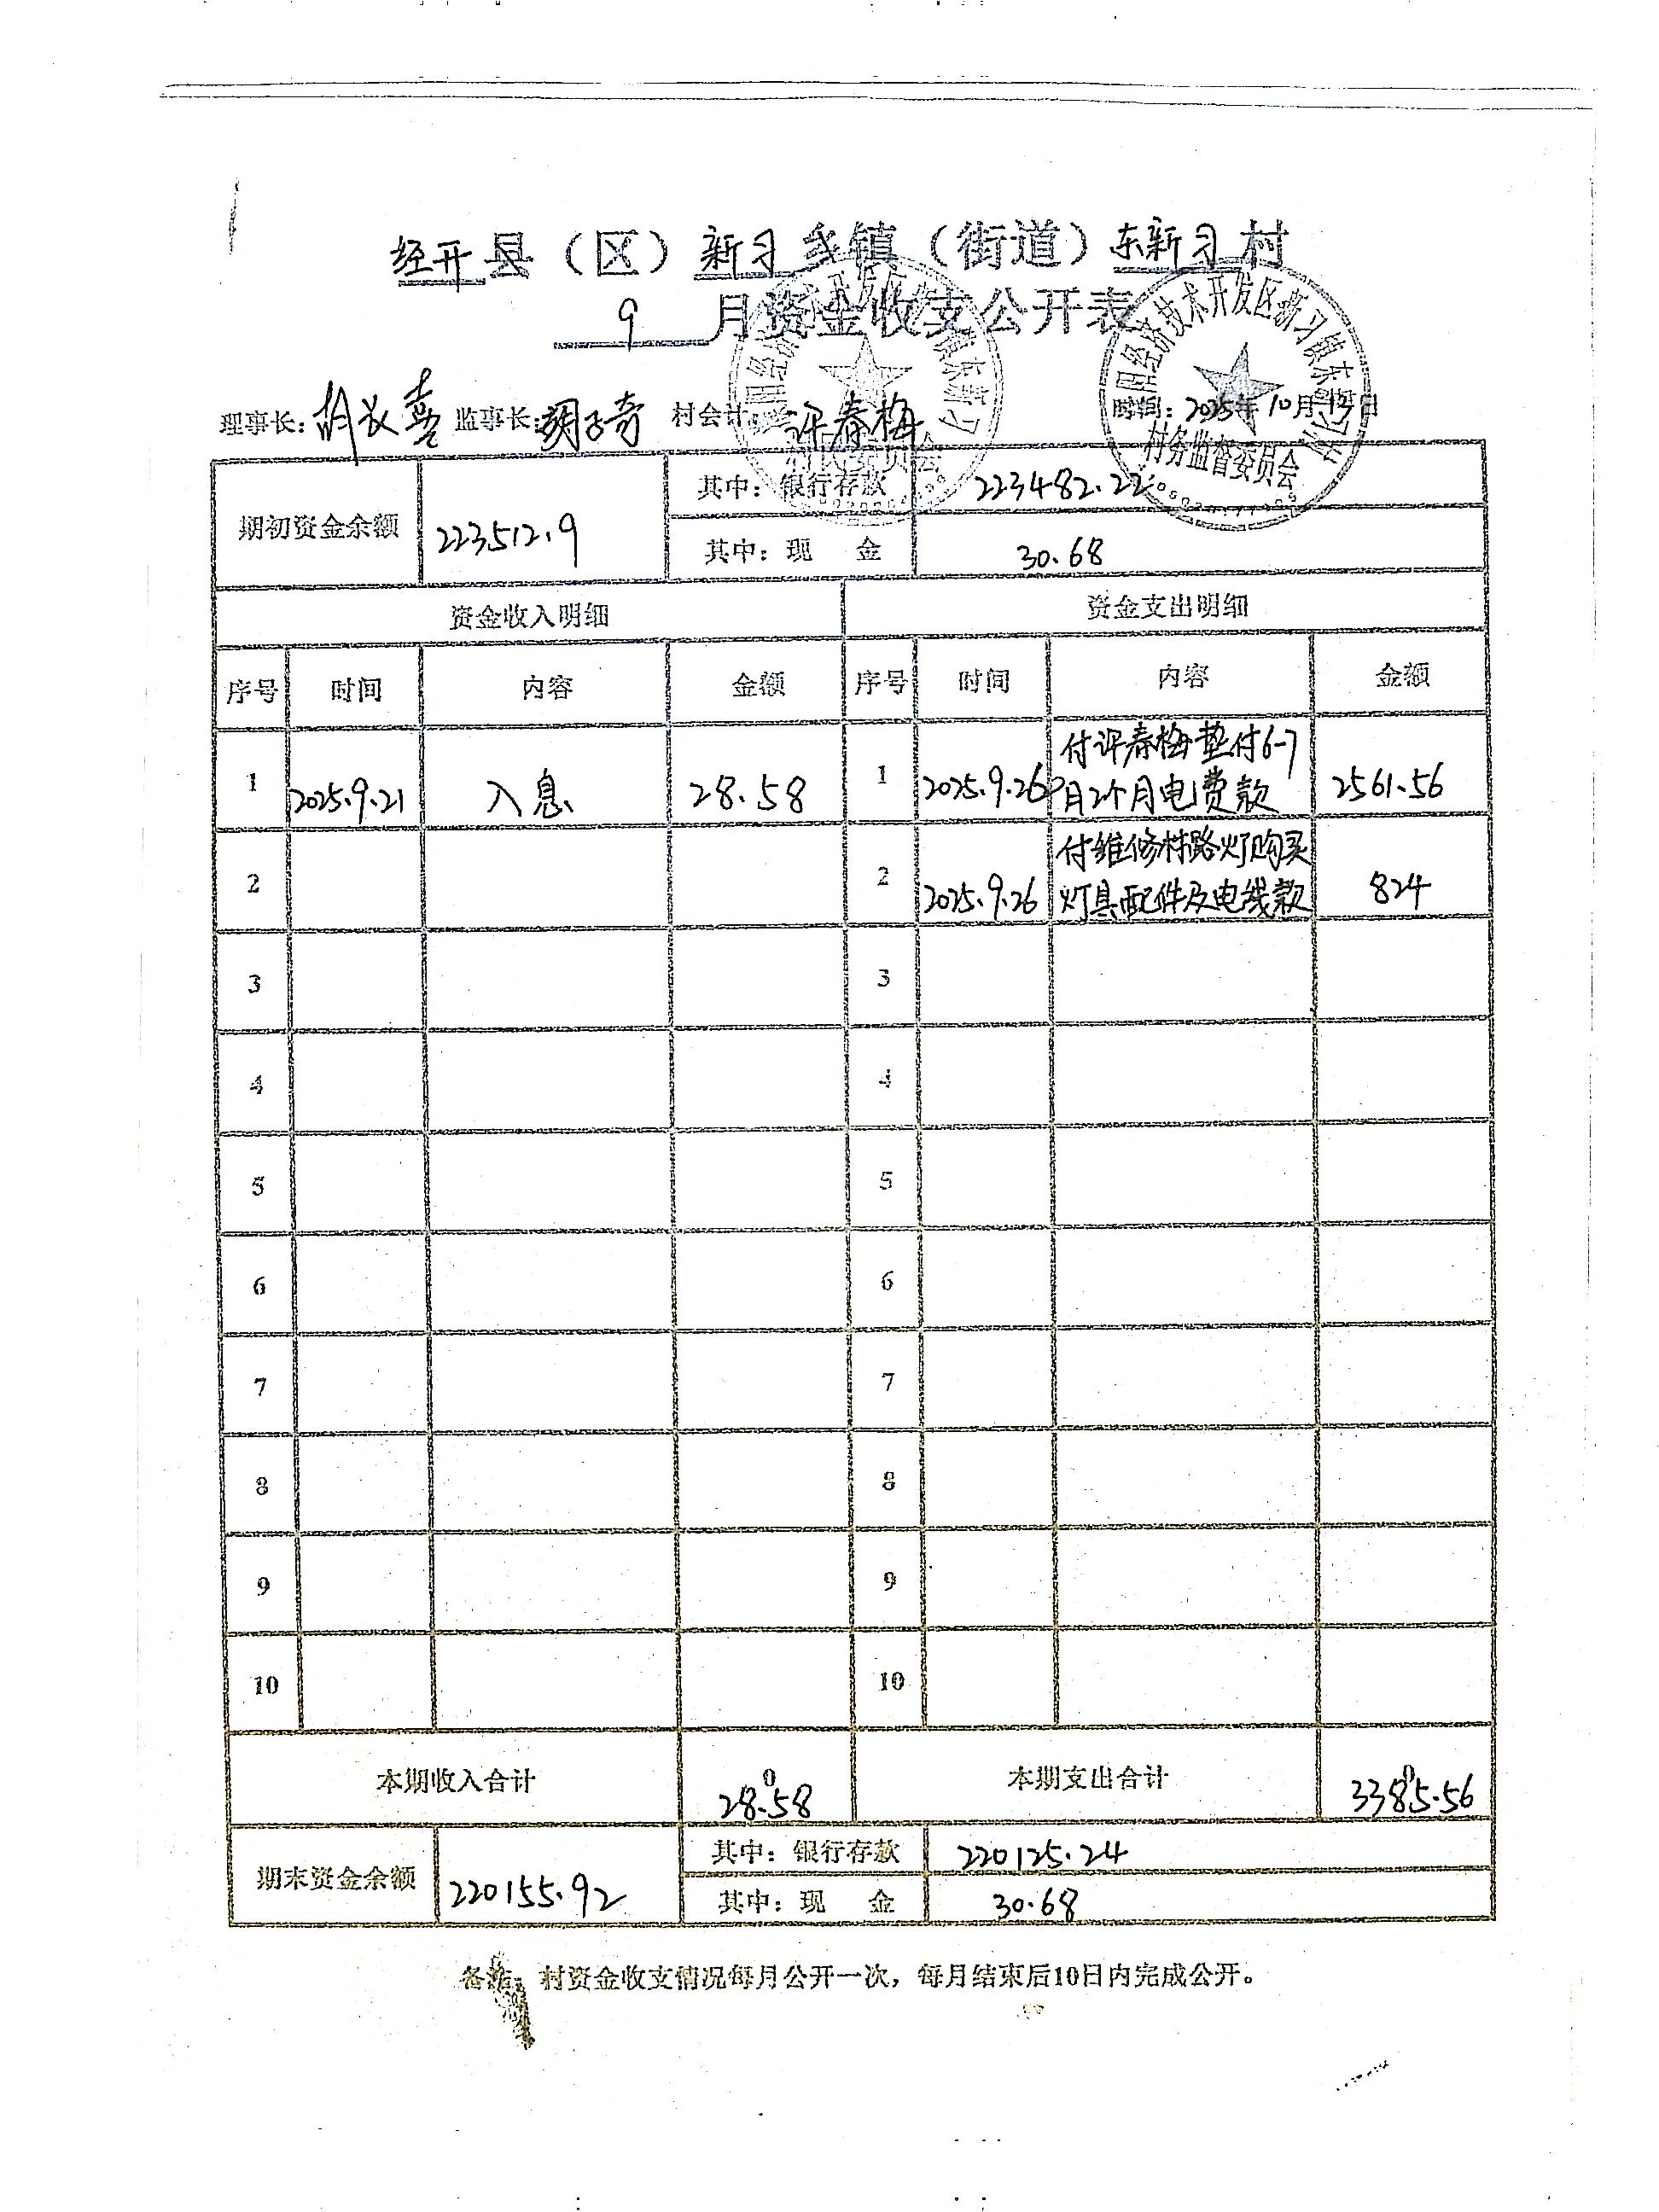 经开县（区）新习乡镇（街道）东新习村
9月资金收支公开表
理事长：胡长喜 监事长：胡子奇 村会计：许春梅 时间：2025年10月 日
经济技术开发区新习镇东新习
村务监督委员会
村民委员会
期初资金余额 223512.9 其中：银行存款 223482.22
其中：现 金 30.68
资金收入明细 资金支出明细
序号 时间 内容 金额 序号 时间 内容 金额
1 2025.9.21 入息 28.58 1 2025.9.26 付许春梅垫付6-7月2个月电费款 2561.56
2 2 2025.9.26 付维修村路灯购买灯具配件及电线款 824
3 3
4 4
5 5
6 6
7 7
8 8
9 9
10 10
本期收入合计 0 28.58 本期支出合计 0 3385.56
期末资金余额 220155.92 其中：银行存款 220125.24
其中：现 金 30.68
备注：村资金收支情况每月公开一次，每月结束后10日内完成公开。